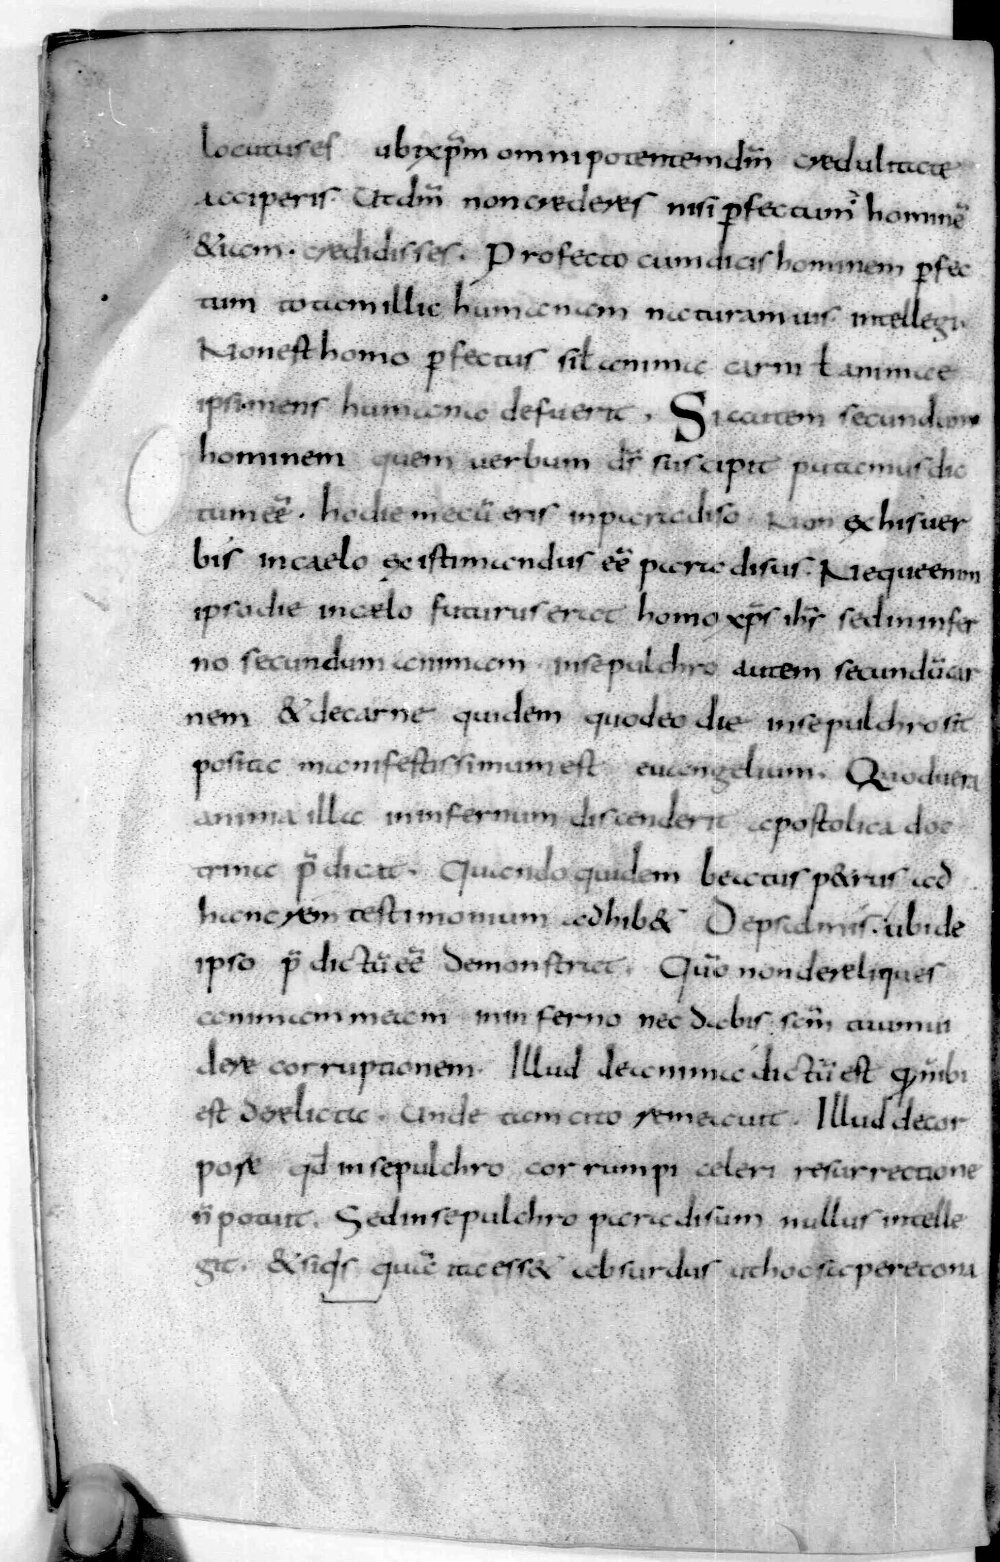 locutus es ubi xp̄m omnipotentem dm̄ credulitate
acciperis. Ut dm̄ non crederes nisi ꝑfectum hominē
& iam. credidisses. Profecto cum dicis hominem ꝑfec
tum totam illic humanam naturam uis intellegi.
Non est homo ꝑfectus si ł anima carni ł animae
ipsi mens humana defuerit. Si autem secundum
hominem quem uerbum ds̄ suscipit putamus dic
tum eē. hodie mecū eris in paradiso Non ex his uer
bis in caelo existimandus eē paradisus. Neque enim
ipso die in caelo futurus erat homo xp̄s ih̄s sed in infer
no secundum animam in sepulchro autem secundū car
nem & de carne quidem quod eo die in sepulchro sit
posita manifestissimum est euangelium. Quod uera
anima illa in infernum discenderit apostolica doc
trina p̄dicat. Quando quidem beatus p&rus ad
hanc rem testimonium adhib& De psalmis. ubi de
ipso p̄dictū eē demonstrat. Quō non dereliques
animam meam in inferno nec dabis sc̄m tuum ui
dere corruptionem. Illud de anima dictū est q̄m ibi
est derelicta. unde tam cito remeauit. Illud de cor
pore qd̄ in sepulchro corrumpi celeri resurrectione
n̄ potuit. Sed in sepulchro paradisum nullus intelle
git. & siqͥs quiā ita ess& absurdus ut hoc sapere cona